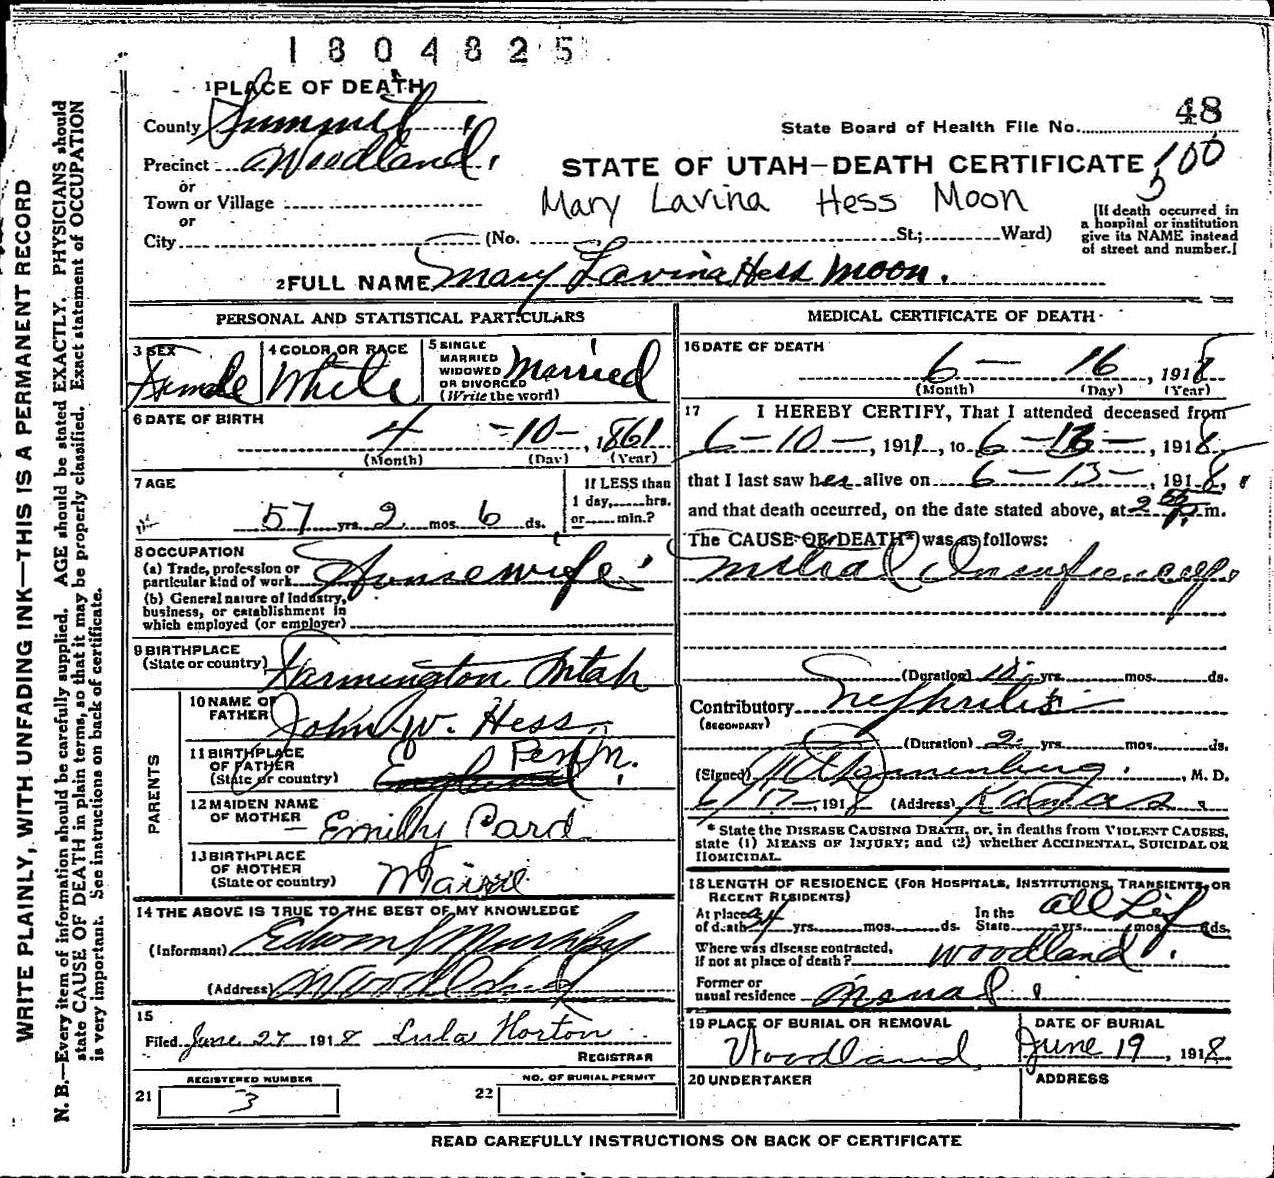 1804825
1 PLACE OF DEATH
County Summit
Precinct Woodland
or
Town or Village
or
City (No. St.; Ward)
State Board of Health File No. 48
STATE OF UTAH—DEATH CERTIFICATE 500
Mary Lavina Hess Moon
[If death occurred in
a hospital or institution
give its NAME instead
of street and number.]
2 FULL NAME Mary Lavina Hess Moon.
PERSONAL AND STATISTICAL PARTICULARS
3 SEX Female
4 COLOR OR RACE White
5 SINGLE
MARRIED
WIDOWED
OR DIVORCED
(Write the word) Married
6 DATE OF BIRTH
4 - 10 -, 1861
(Month) (Day) (Year)
7 AGE
57 yrs. 2 mos. 6 ds.
If LESS than
1 day, hrs.
or min.?
8 OCCUPATION
(a) Trade, profession or
particular kind of work Housewife
(b) General nature of Industry,
business, or establishment in
which employed (or employer)
9 BIRTHPLACE
(State or country) Farmington Utah
PARENTS
10 NAME OF
FATHER John W. Hess
11 BIRTHPLACE
OF FATHER
(State or country) England Penn.
12 MAIDEN NAME
OF MOTHER Emily Card
13 BIRTHPLACE
OF MOTHER
(State or country) Maine
14 THE ABOVE IS TRUE TO THE BEST OF MY KNOWLEDGE
(Informant) Edwin Murphy
(Address) Woodland
15
Filed June 27 1918 Lula Horton
REGISTRAR
REGISTERED NUMBER
21 3
NO. OF BURIAL PERMIT
22
MEDICAL CERTIFICATE OF DEATH
16 DATE OF DEATH
6 - 16, 1918
(Month) (Day) (Year)
17 I HEREBY CERTIFY, That I attended deceased from
6-10-, 1911, to 6-13-, 1918,
that I last saw her alive on 6-13-, 1918,
and that death occurred, on the date stated above, at 2 P. m.
The CAUSE OF DEATH* was as follows:
Mitral Insufficiency
(Duration) yrs. mos. ds.
Contributory Nephritis
(SECONDARY)
(Duration) 2 yrs. mos. ds.
(Signed) , M. D.
6/17-1918 (Address) Kamas
* State the DISEASE CAUSING DEATH, or, in deaths from VIOLENT CAUSES,
state (1) MEANS OF INJURY; and (2) whether ACCIDENTAL, SUICIDAL OR
HOMICIDAL.
18 LENGTH OF RESIDENCE (FOR HOSPITALS, INSTITUTIONS, TRANSIENTS, OR
RECENT RESIDENTS)
At place
of death yrs. mos. ds. In the
State All Life yrs. mos. ds.
Where was disease contracted,
if not at place of death? Woodland
Former or
usual residence
19 PLACE OF BURIAL OR REMOVAL
Woodland
DATE OF BURIAL
June 19, 1918
20 UNDERTAKER
ADDRESS
READ CAREFULLY INSTRUCTIONS ON BACK OF CERTIFICATE
WRITE PLAINLY, WITH UNFADING INK—THIS IS A PERMANENT RECORD
N. B.—Every item of information should be carefully supplied. AGE should be stated EXACTLY. PHYSICIANS should
state CAUSE OF DEATH in plain terms, so that it may be properly classified. Exact statement of OCCUPATION
is very important. See instructions on back of certificate.